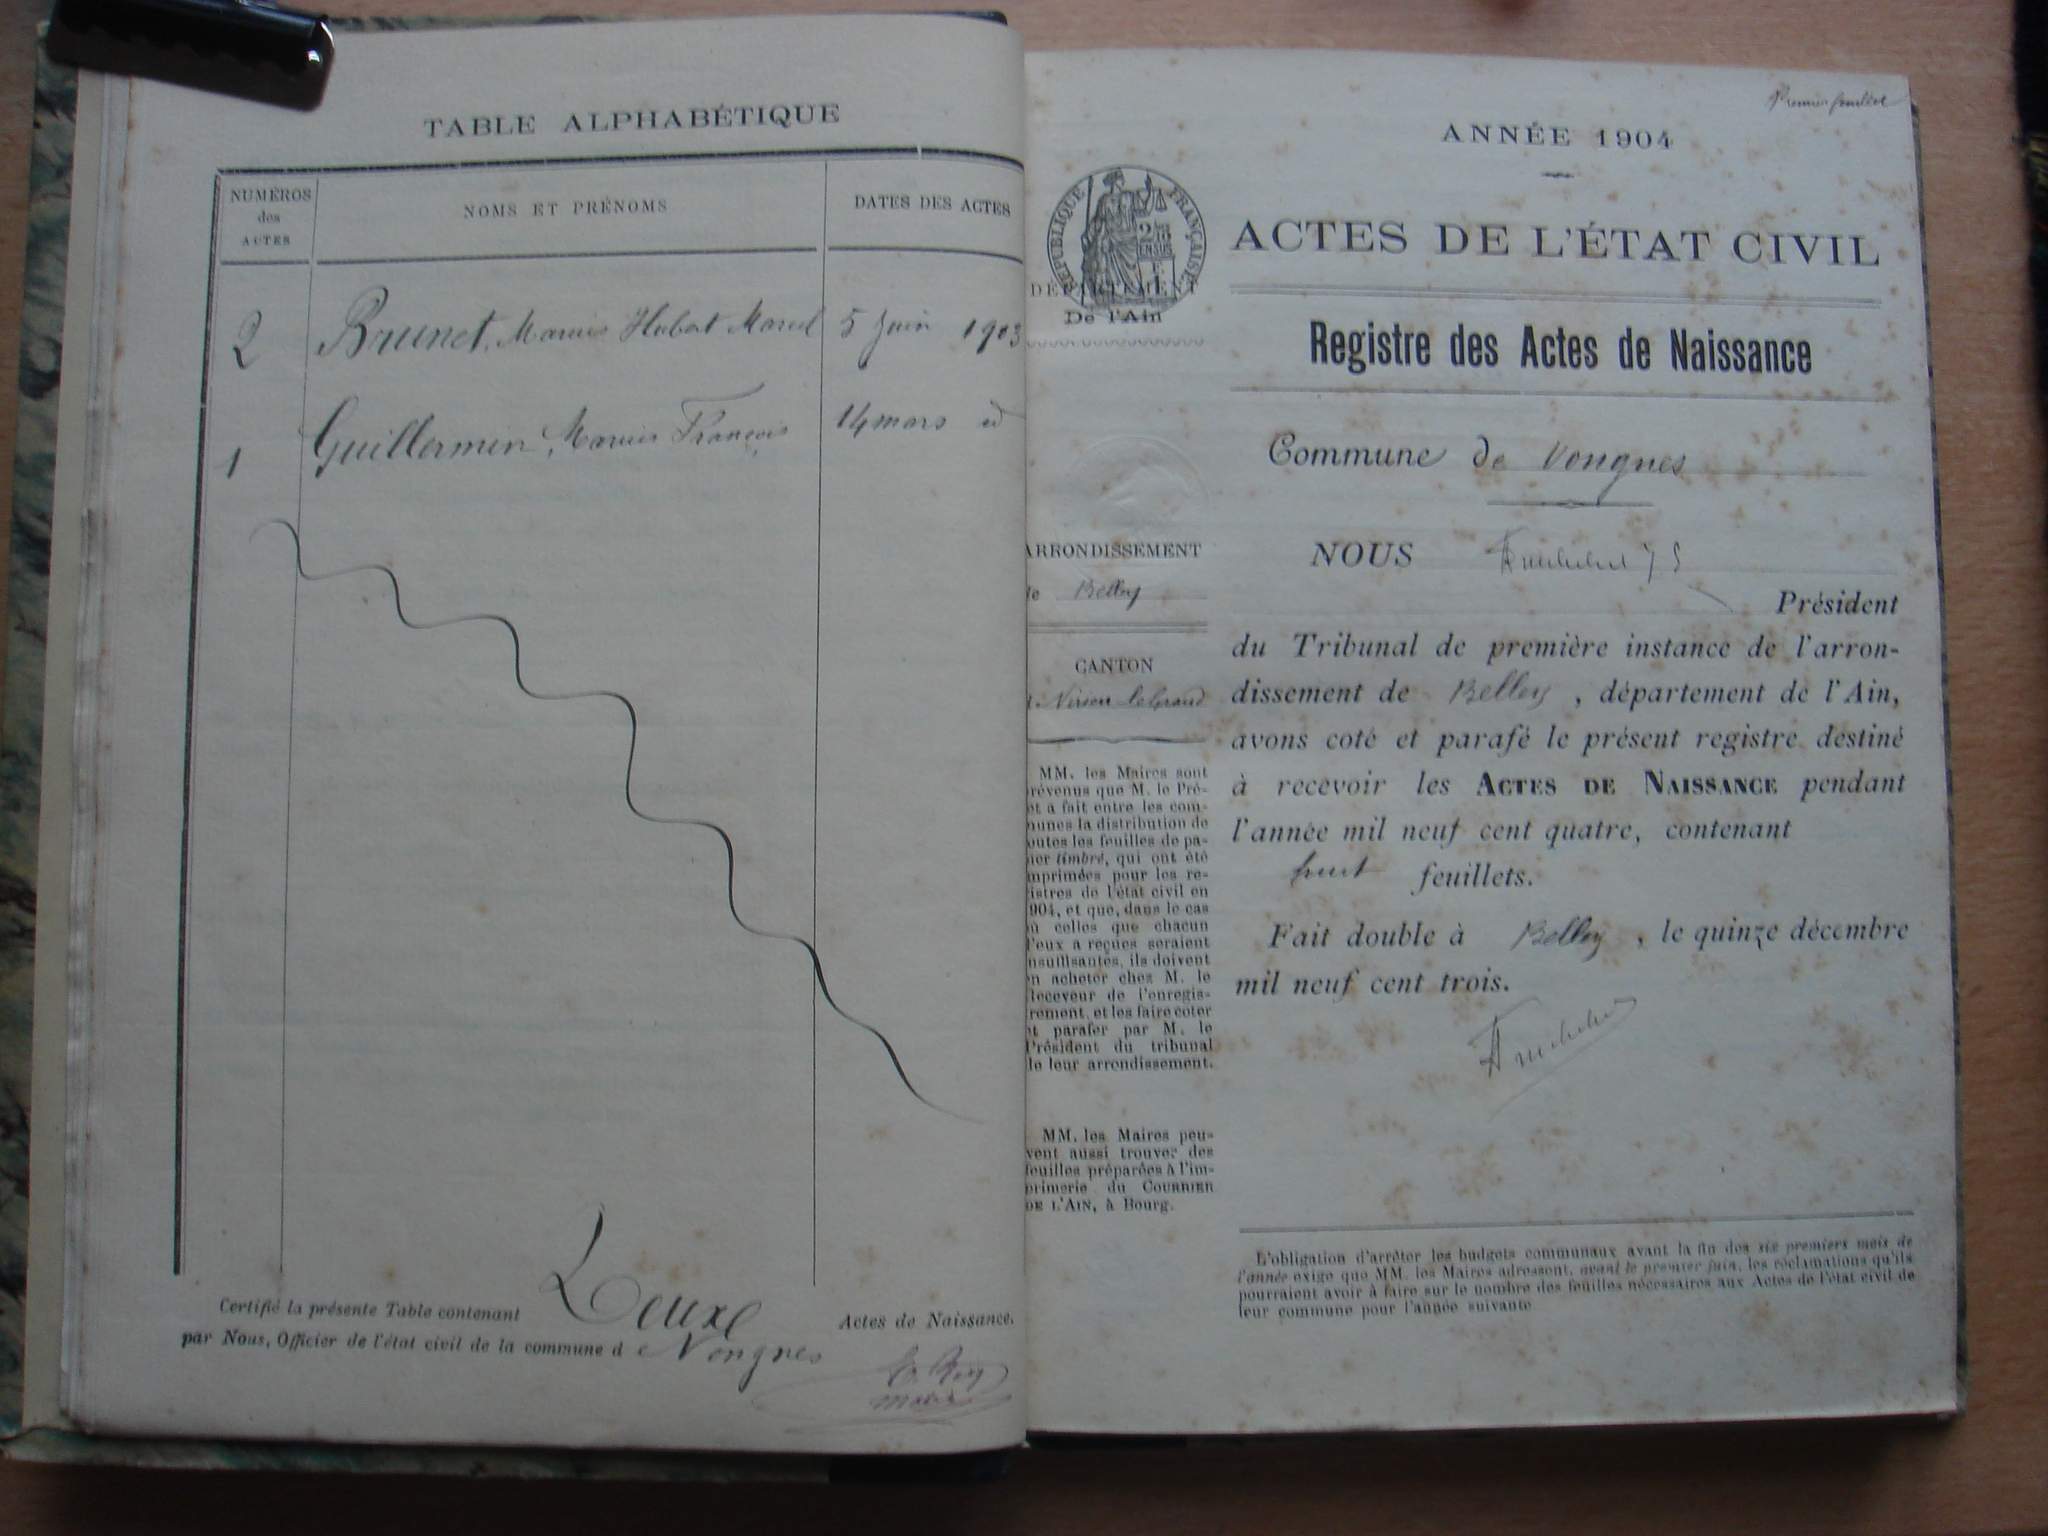 TABLE ALPHABÉTIQUE
NUMÉROS
des
ACTES
NOMS ET PRÉNOMS
DATES DES ACTES
2 Brunet, Marius Hubert Marcel 5 juin 1903
1 Guillermin, Marius François 14 mars id
Certifié la présente Table contenant Deux Actes de Naissance.
par Nous, Officier de l'état civil de la commune de Vongnes
Le Roy
maire
Premier feuillet
ANNÉE 1904
RÉPUBLIQUE FRANÇAISE
DÉPARTEMENT
De l'Ain
ACTES DE L'ÉTAT CIVIL
Registre des Actes de Naissance
Commune de Vongnes
ARRONDISSEMENT
de Belley
CANTON
Virieu le Grand
MM. les Maires sont
prévenus que M. le Pré-
et a fait entre les com-
munes la distribution de
toutes les feuilles de pa-
pier timbré, qui ont été
imprimées pour les re-
gistres de l'état civil en
1904, et que, dans le cas
où celles que chacun
d'eux a reçues seraient
insuffisantes, ils doivent
en acheter chez M. le
Receveur de l'enregis-
trement, et les faire coter
et parafer par M. le
Président du tribunal
de leur arrondissement.
MM. les Maires peu-
vent aussi trouver des
feuilles préparées à l'im-
primerie du COURRIER
DE L'AIN, à Bourg.
NOUS
Président
du Tribunal de première instance de l'arron-
dissement de Belley, département de l'Ain,
avons coté et parafé le présent registre destiné
à recevoir les ACTES DE NAISSANCE pendant
l'année mil neuf cent quatre, contenant
huit feuillets.
Fait double à Belley, le quinze décembre
mil neuf cent trois.
L'obligation d'arrêter les budgets communaux avant la fin des six premiers mois de
l'année exige que MM. les Maires adressent, avant le premier juin, les réclamations qu'ils
pourraient avoir à faire sur le nombre des feuilles nécessaires aux Actes de l'état civil de
leur commune pour l'année suivante